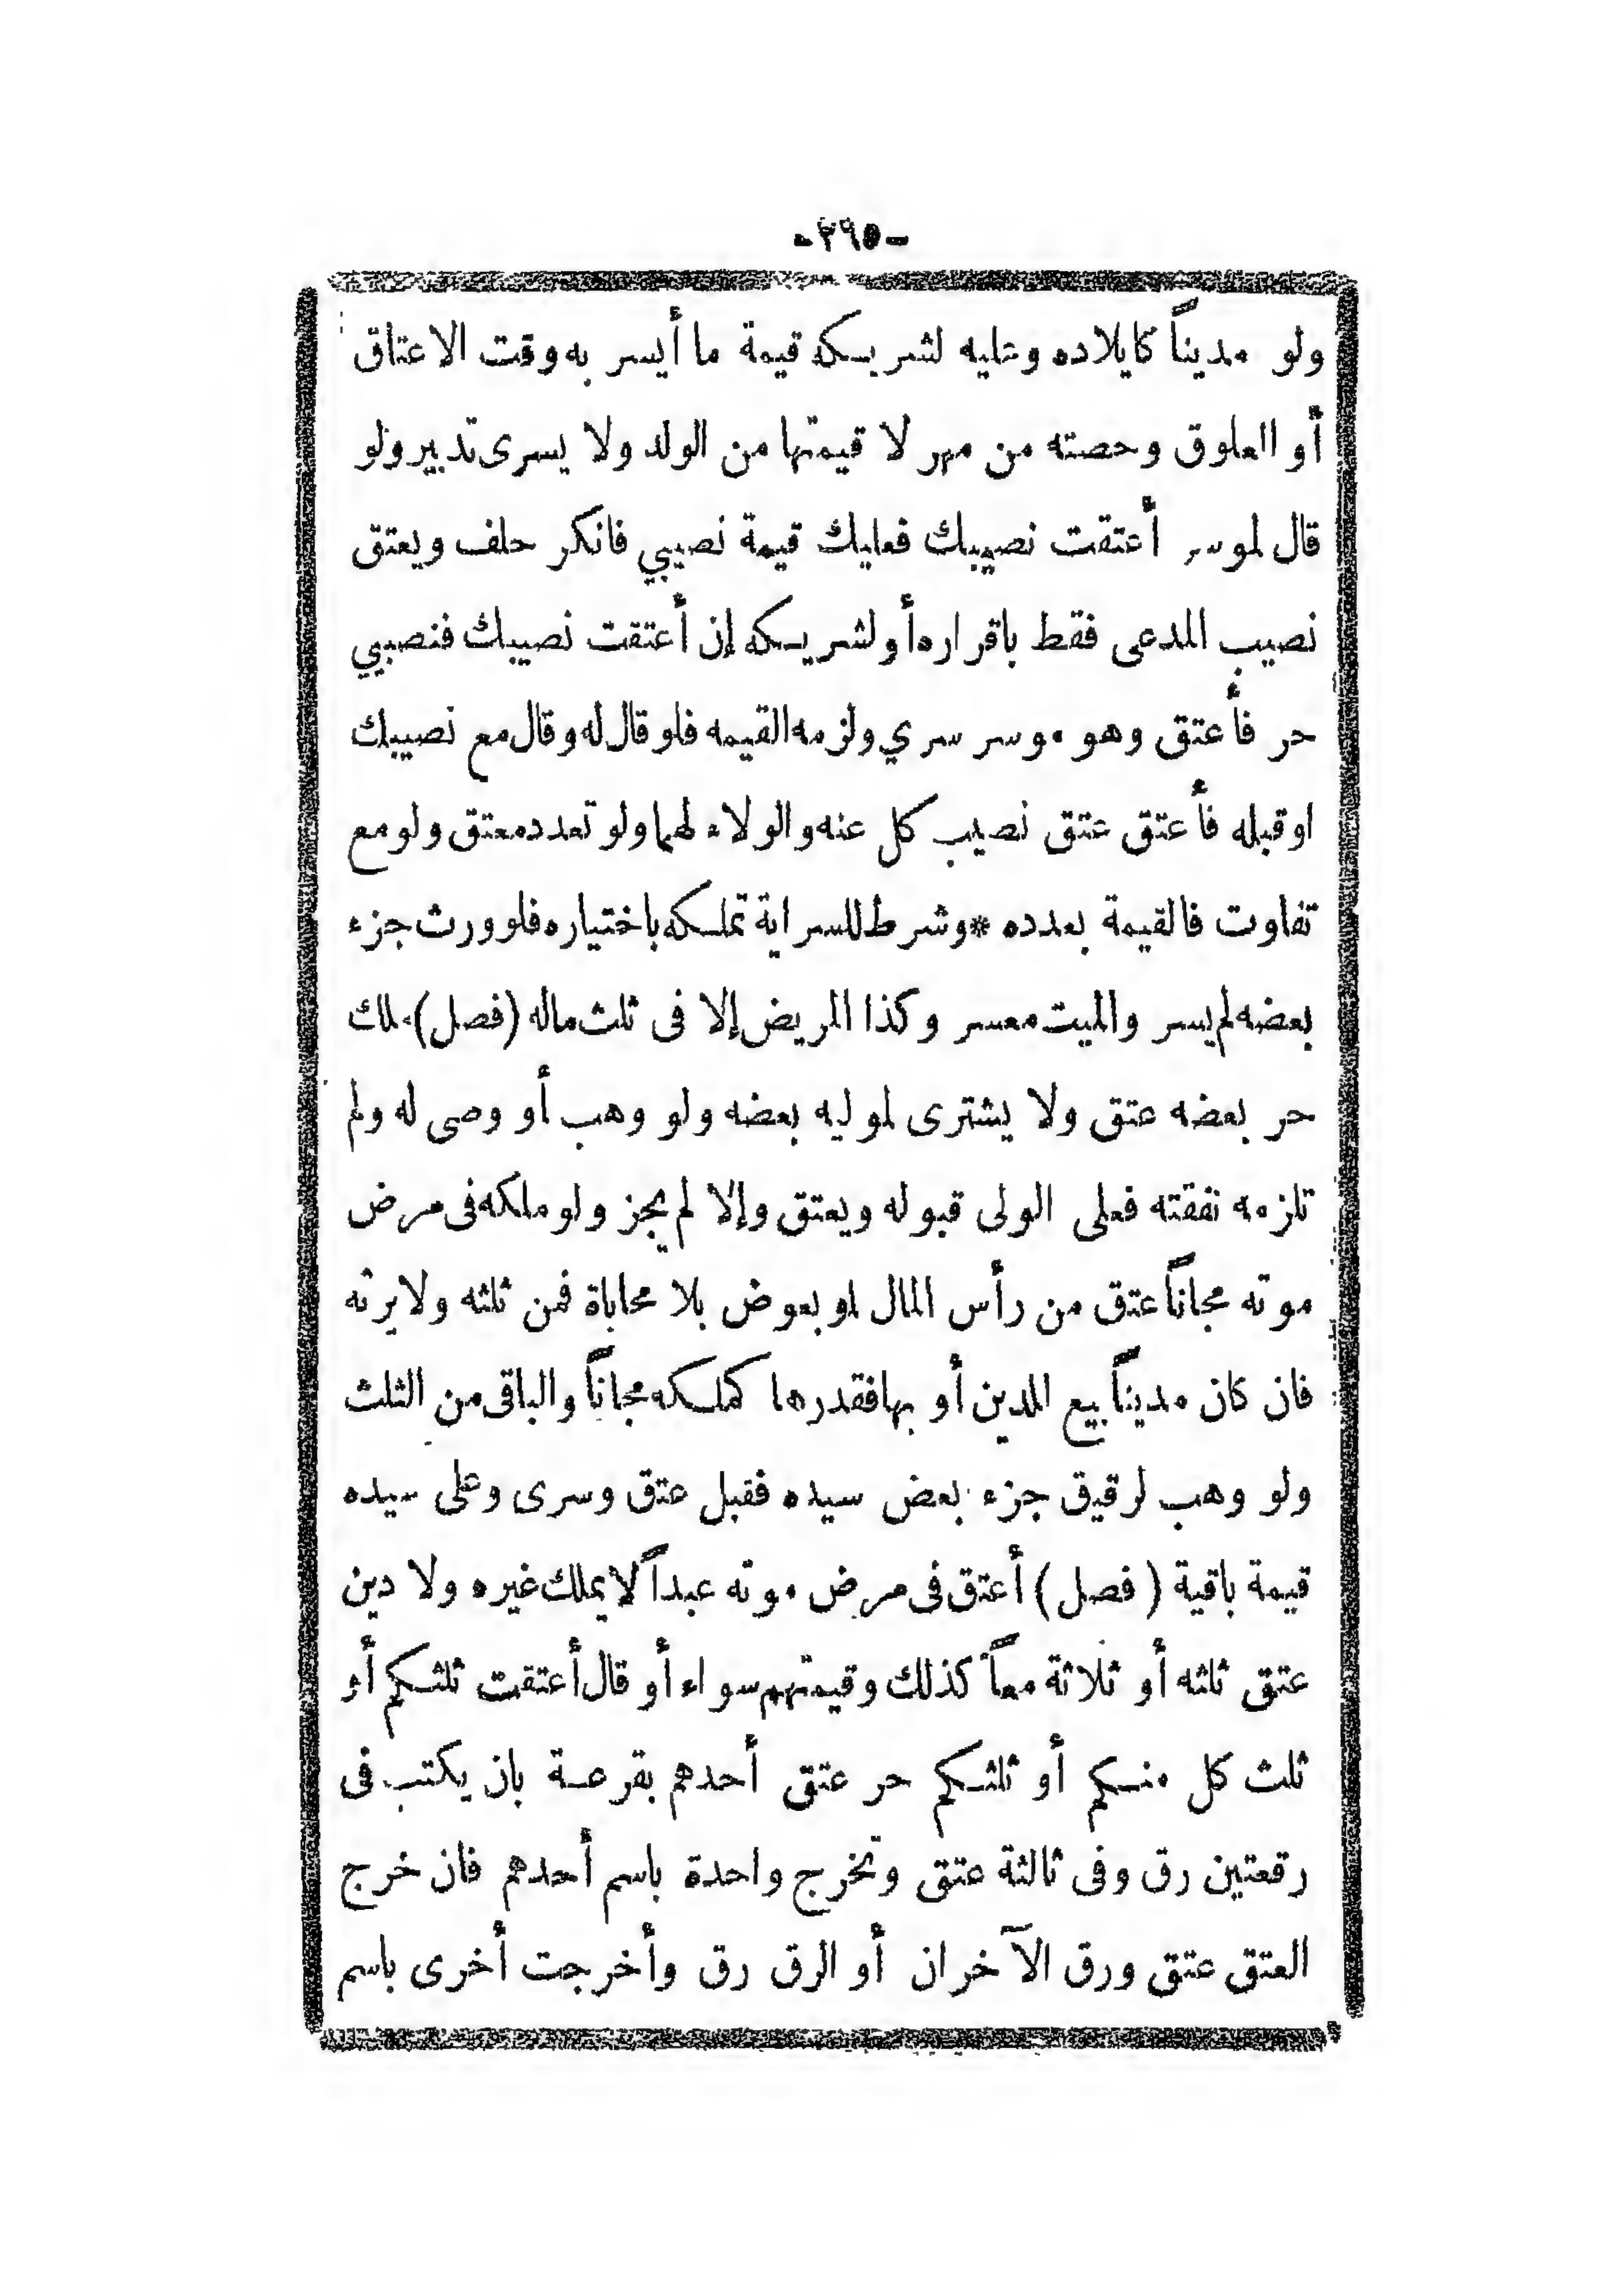 -٣٩٥-
ولو مديناً كايلاده وعليه لشريكه قيمة ما أيسر به وقت الاعتاق
أو العلوق وحصته من مهر لا قيمتها من الولد ولا يسرى تدبير ولو
قال لموسر أعتقت نصيبك فعليك قيمة نصيبي فانكر حلف ويعتق
نصيب المدعى فقط باقراره أو لشريكه إن أعتقت نصيبك فنصيبي
حر فأعتق وهو موسر سري ولزمه القيمه فلو قال له وقال مع نصيبك
او قبله فأعتق عتق نصيب كل عنه والولاء لهما ولو تعدد معتق ولو مع
تفاوت فالقيمة بعدده *وشرط للسراية تملكه باختياره فلو ورث جزء
بعضه لم يسر والميت معسر وكذا المريض إلا فى ثلث ماله (فصل) ملك
حر بعضه عتق ولا يشترى لموليه بعضه ولو وهب أو وصى له ولم
تلزمه نفقته فعلى الولى قبوله ويعتق وإلا لم يجز ولو ملكه فى مرض
موته مجاناً عتق من رأس المال او بعوض بلا محاباة فمن ثلثه ولا يرثه
فان كان مديناً بيع للدين أو بها فقدرها كملكه مجاناً والباقى من الثلث
ولو وهب لرقيق جزء بعض سيده فقبل عتق وسرى وعلى سيده
قيمة باقية (فصل) أعتق فى مرض موته عبداً لا يملك غيره ولا دين
عتق ثلثه أو ثلاثة معاً كذلك وقيمتهم سواء أو قال أعتقت ثلثكم أو
ثلث كل منكم أو ثلثكم حر عتق أحدهم بقرعة بان يكتب فى
رقعتين رق وفى ثالثة عتق وتخرج واحدة باسم أحدهم فان خرج
العتق عتق ورق الآخران أو الرق رق وأخرجت أخرى باسم